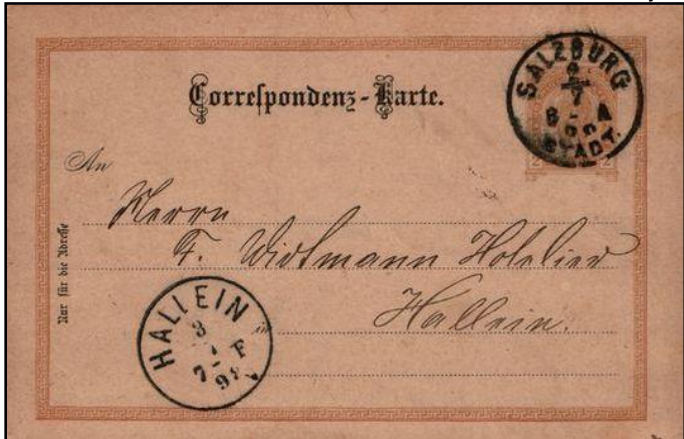 Correspondenz-Karte.
SALZBURG
7
STADT.
2 2
An
Herrn
F. Widtmann Hotelier
Hallein.
in
Nur für die Adresse
HALLEIN
7 F